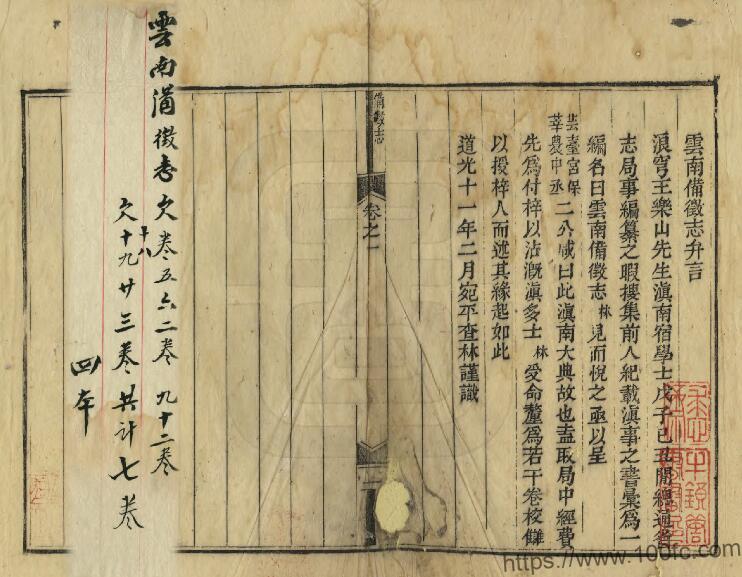 雲南備徵志弁言
浪穹王樂山先生滇南宿學士戊子己丑間總通省
志局事編纂之暇搜集前人紀載滇事之書彙為一
編名曰雲南備徵志林見而悅之亟以呈
芸臺宮保
莘農中丞
二公咸曰此滇南大典故也盍取局中經費
先為付梓以沾溉滇多士林受命釐為若干卷校讎
以授梓人而述其緣起如此
道光十一年二月宛平查林謹識
備徵志
卷之一
雲南備徵志欠卷五六二卷九十二卷
欠十八十九廿三卷共計七卷
四本
https://www.100fc.com